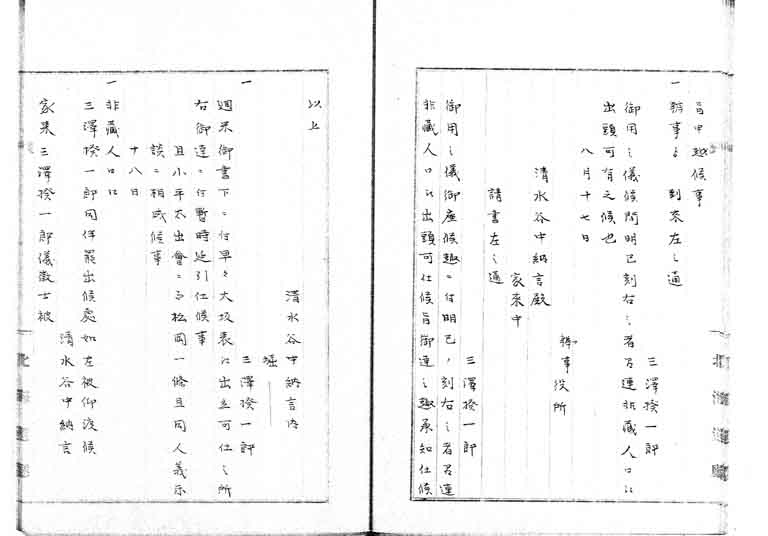 旨申越候事
一 辨事ゟ到来左之通
三澤揆一郎
御用之儀候間明巳刻右之者召連非蔵人口江
出頭可有之候也
八月十七日
辨事役所
清水谷中納言殿
家来中
請書左之通
三澤揆一郎
御用之儀御座候趣ニ付明巳ノ刻右之者召連
非蔵人口江出頭可仕候旨御達之趣承知仕候
以上
清水谷中納言内
堀
一 三澤揆一郎
過来御書下ニ付早々大坂表江出立可仕之所
右御達ニ付暫時延引仕候事
且小平太出會ニ而松岡一條且同人義示
談ニ相成候事
十八日
一 非蔵人口江
三澤揆一郎同伴罷出候處如左被仰渡候
清水谷中納言
家来三澤揆一郎儀徴士被